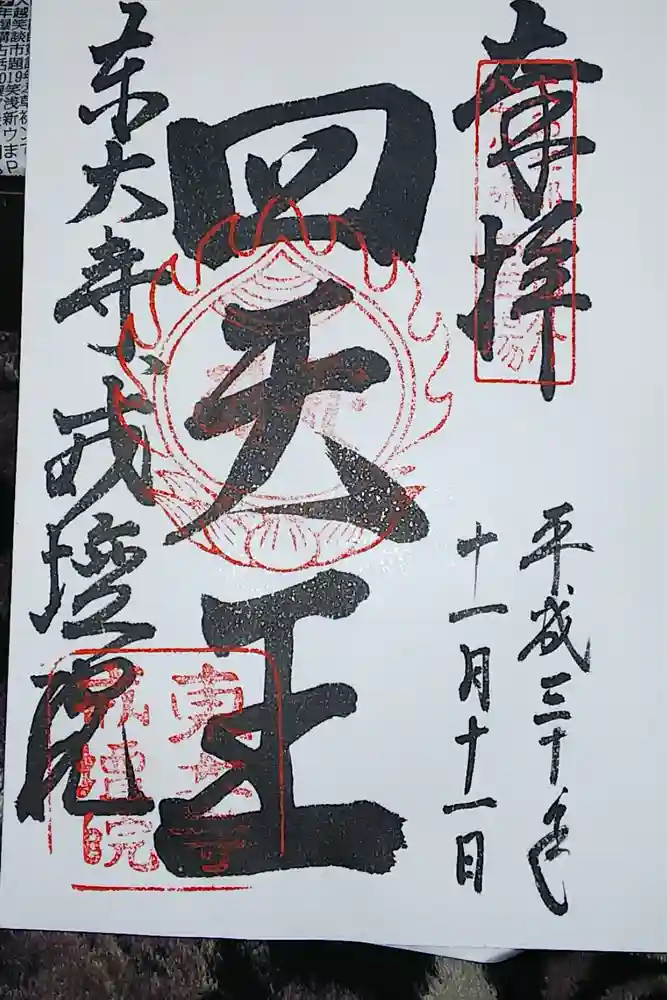 奉拝
平成三十年
十一月十一日
四天王
東大寺戒壇院
東大寺
戒壇院